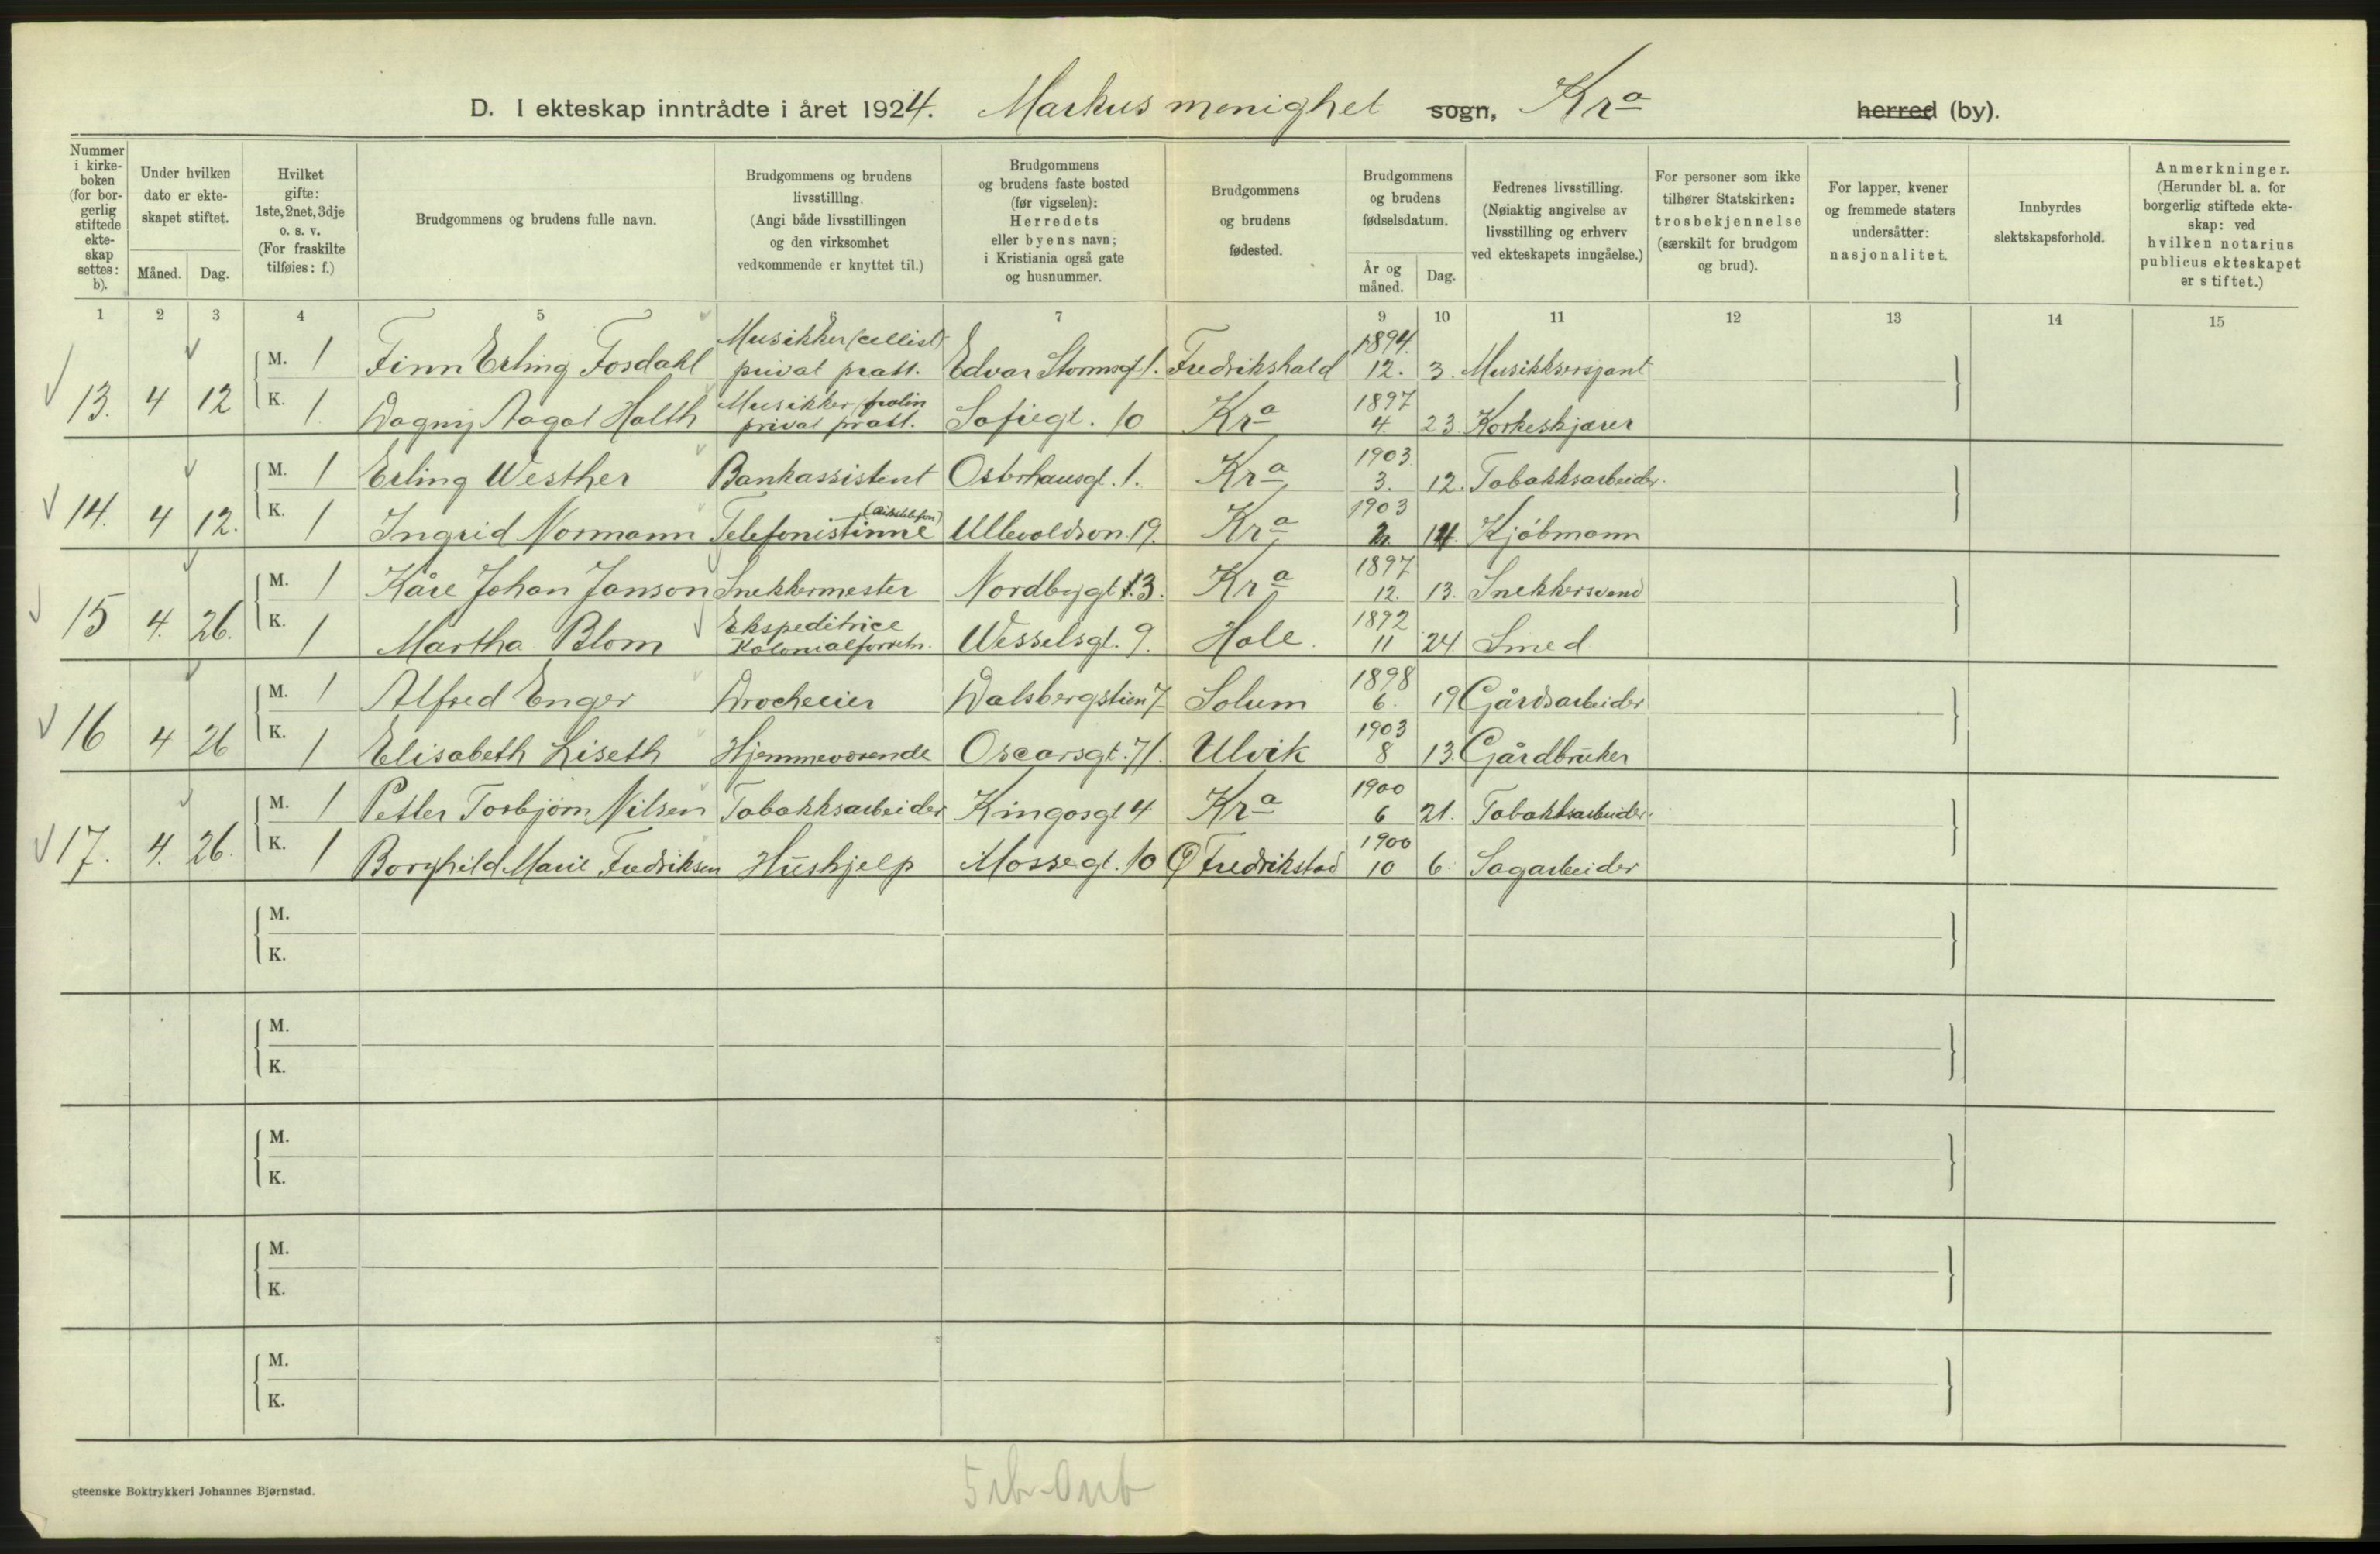 D. I ekteskap inntrådte i året 1924. Markus menighet sogn, Kra herred (by).
Nummer i kirke-boken (for bor-gerlig stiftede ekte-skap settes: b).
Under hvilken dato er ekte-skapet stiftet.
Måned. Dag.
Hvilket gifte: 1ste, 2net, 3dje o. s. v. (For fraskilte tilføies: f.)
Brudgommens og brudens fulle navn.
Brudgommens og brudens livsstilling. (Angi både livsstillingen og den virksomhet vedkommende er knyttet til.)
Brudgommens og brudens faste bosted (før vigselen): Herredets eller byens navn; i Kristiania også gate og husnummer.
Brudgommens og brudens fødested.
Brudgommens og brudens fødselsdatum.
År og måned. Dag.
Fedrenes livsstilling. (Nøiaktig angivelse av livsstilling og erhverv ved ekteskapets inngåelse.)
For personer som ikke tilhører Statskirken: trosbekjennelse (særskilt for brudgom og brud).
For lapper, kvener og fremmede staters undersåtter: nasjonalitet.
Innbyrdes slektskapsforhold.
Anmerkninger. (Herunder bl. a. for borgerlig stiftede ekte-skap: ved hvilken notarius publicus ekteskapet er stiftet.)
1 2 3 4 5 6 7 9 10 11 12 13 14 15
13. 4 12 M. 1 Finn Erling Fosdahl Musikker (cellist) privat pratt. Edvar Stormsgt 1. Fredrikshald 1894. 12. 3. Musikksersjant
K. 1 Dagny Aagot Holth Musikker privat pratt. Sofiegt. 10 Kra 1897 4. 23 Korkeskjærer
14. 4 12. M. 1 Erling Westher Bankassistent Osterhausgt. 1. Kra 1903 3. 12. Tobakksarbeider.
K. 1 Ingrid Normann Telefonistinne Ullevoldsvn. 19. Kra 1903 2. 14. Kjøbmann
15 4. 26. M. 1 Kåre Johan Janson Snekkermester Nordbygt 13. Kra 1897 12. 13. Snekkersvend
K. 1 Martha Blom Ekspeditrice Kolonialforretn. Wesselsgt. 9. Hole. 1892 11 24 Smed
16 4 26 M. 1 Alfred Enger Drocheeier Dalsbergstien 7 Solum 1898 6. 19 Gårdsarbeider
K. 1 Elisabeth Liseth Hjemmeværende Oscarsgt. 71. Ulvik 1903 8 13. Gårdbruker
17. 4. 26. M. 1 Petter Torbjørn Nilsen Tobakksarbeider Kingosgt 4 Kra 1900 6 21. Tobakksarbeider.
K. 1 Borghild Marie Fredriksen Hushjelp Mossegt. 10 Ø Fredrikstad 1900 10 6. Sagarbeider
M.
K.
M.
K.
M.
K.
M.
K.
M.
K.
gteenske Boktrykkeri Johannes Bjørnstad.